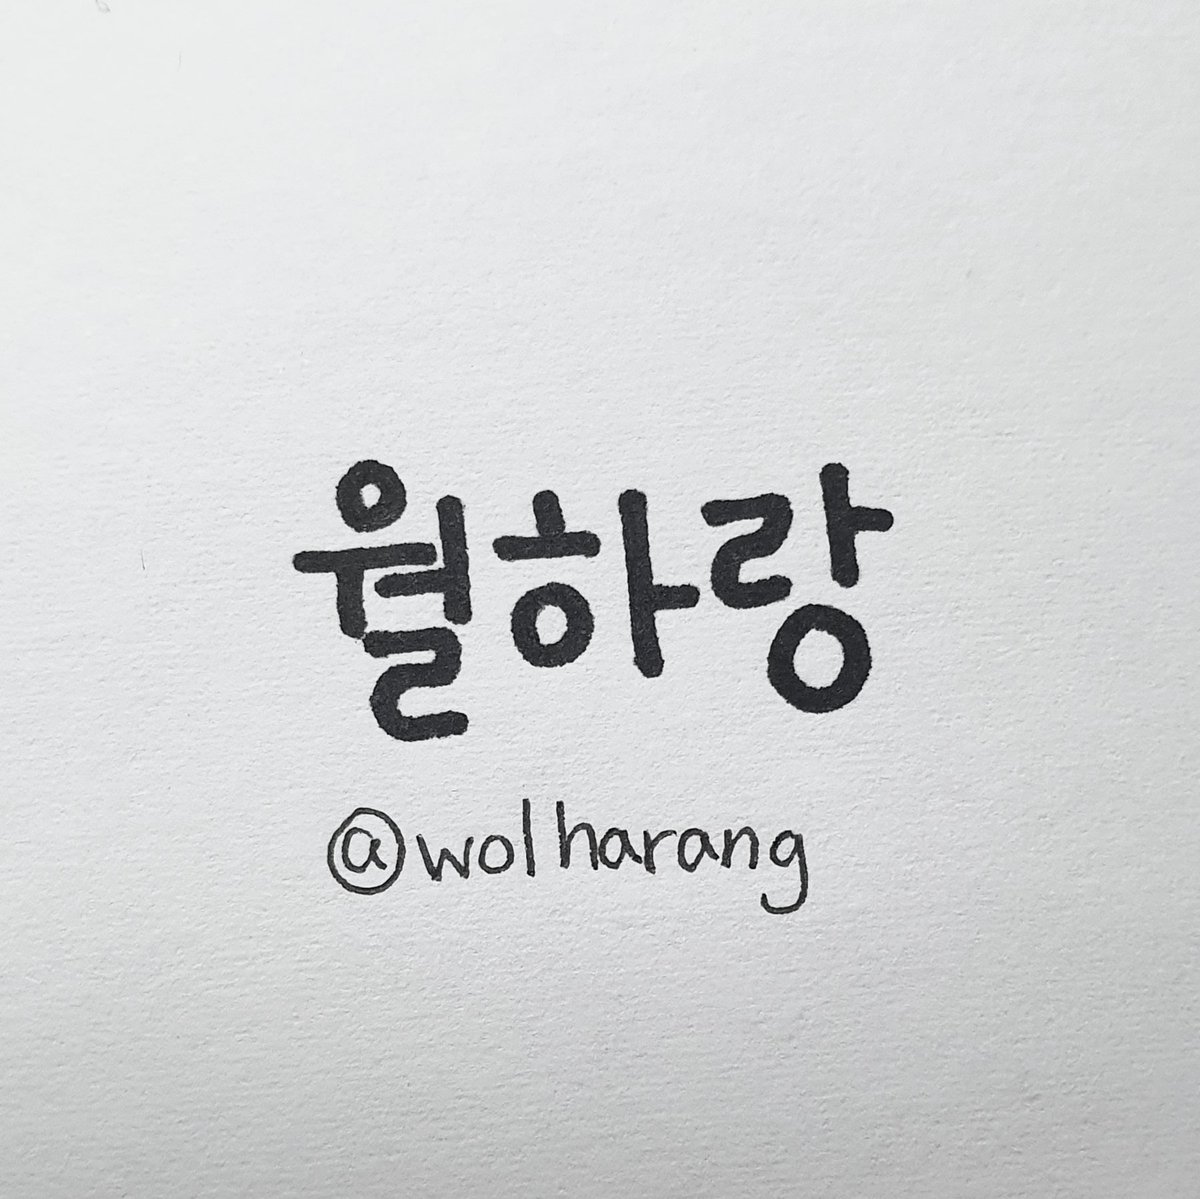 월하랑
@wolharang